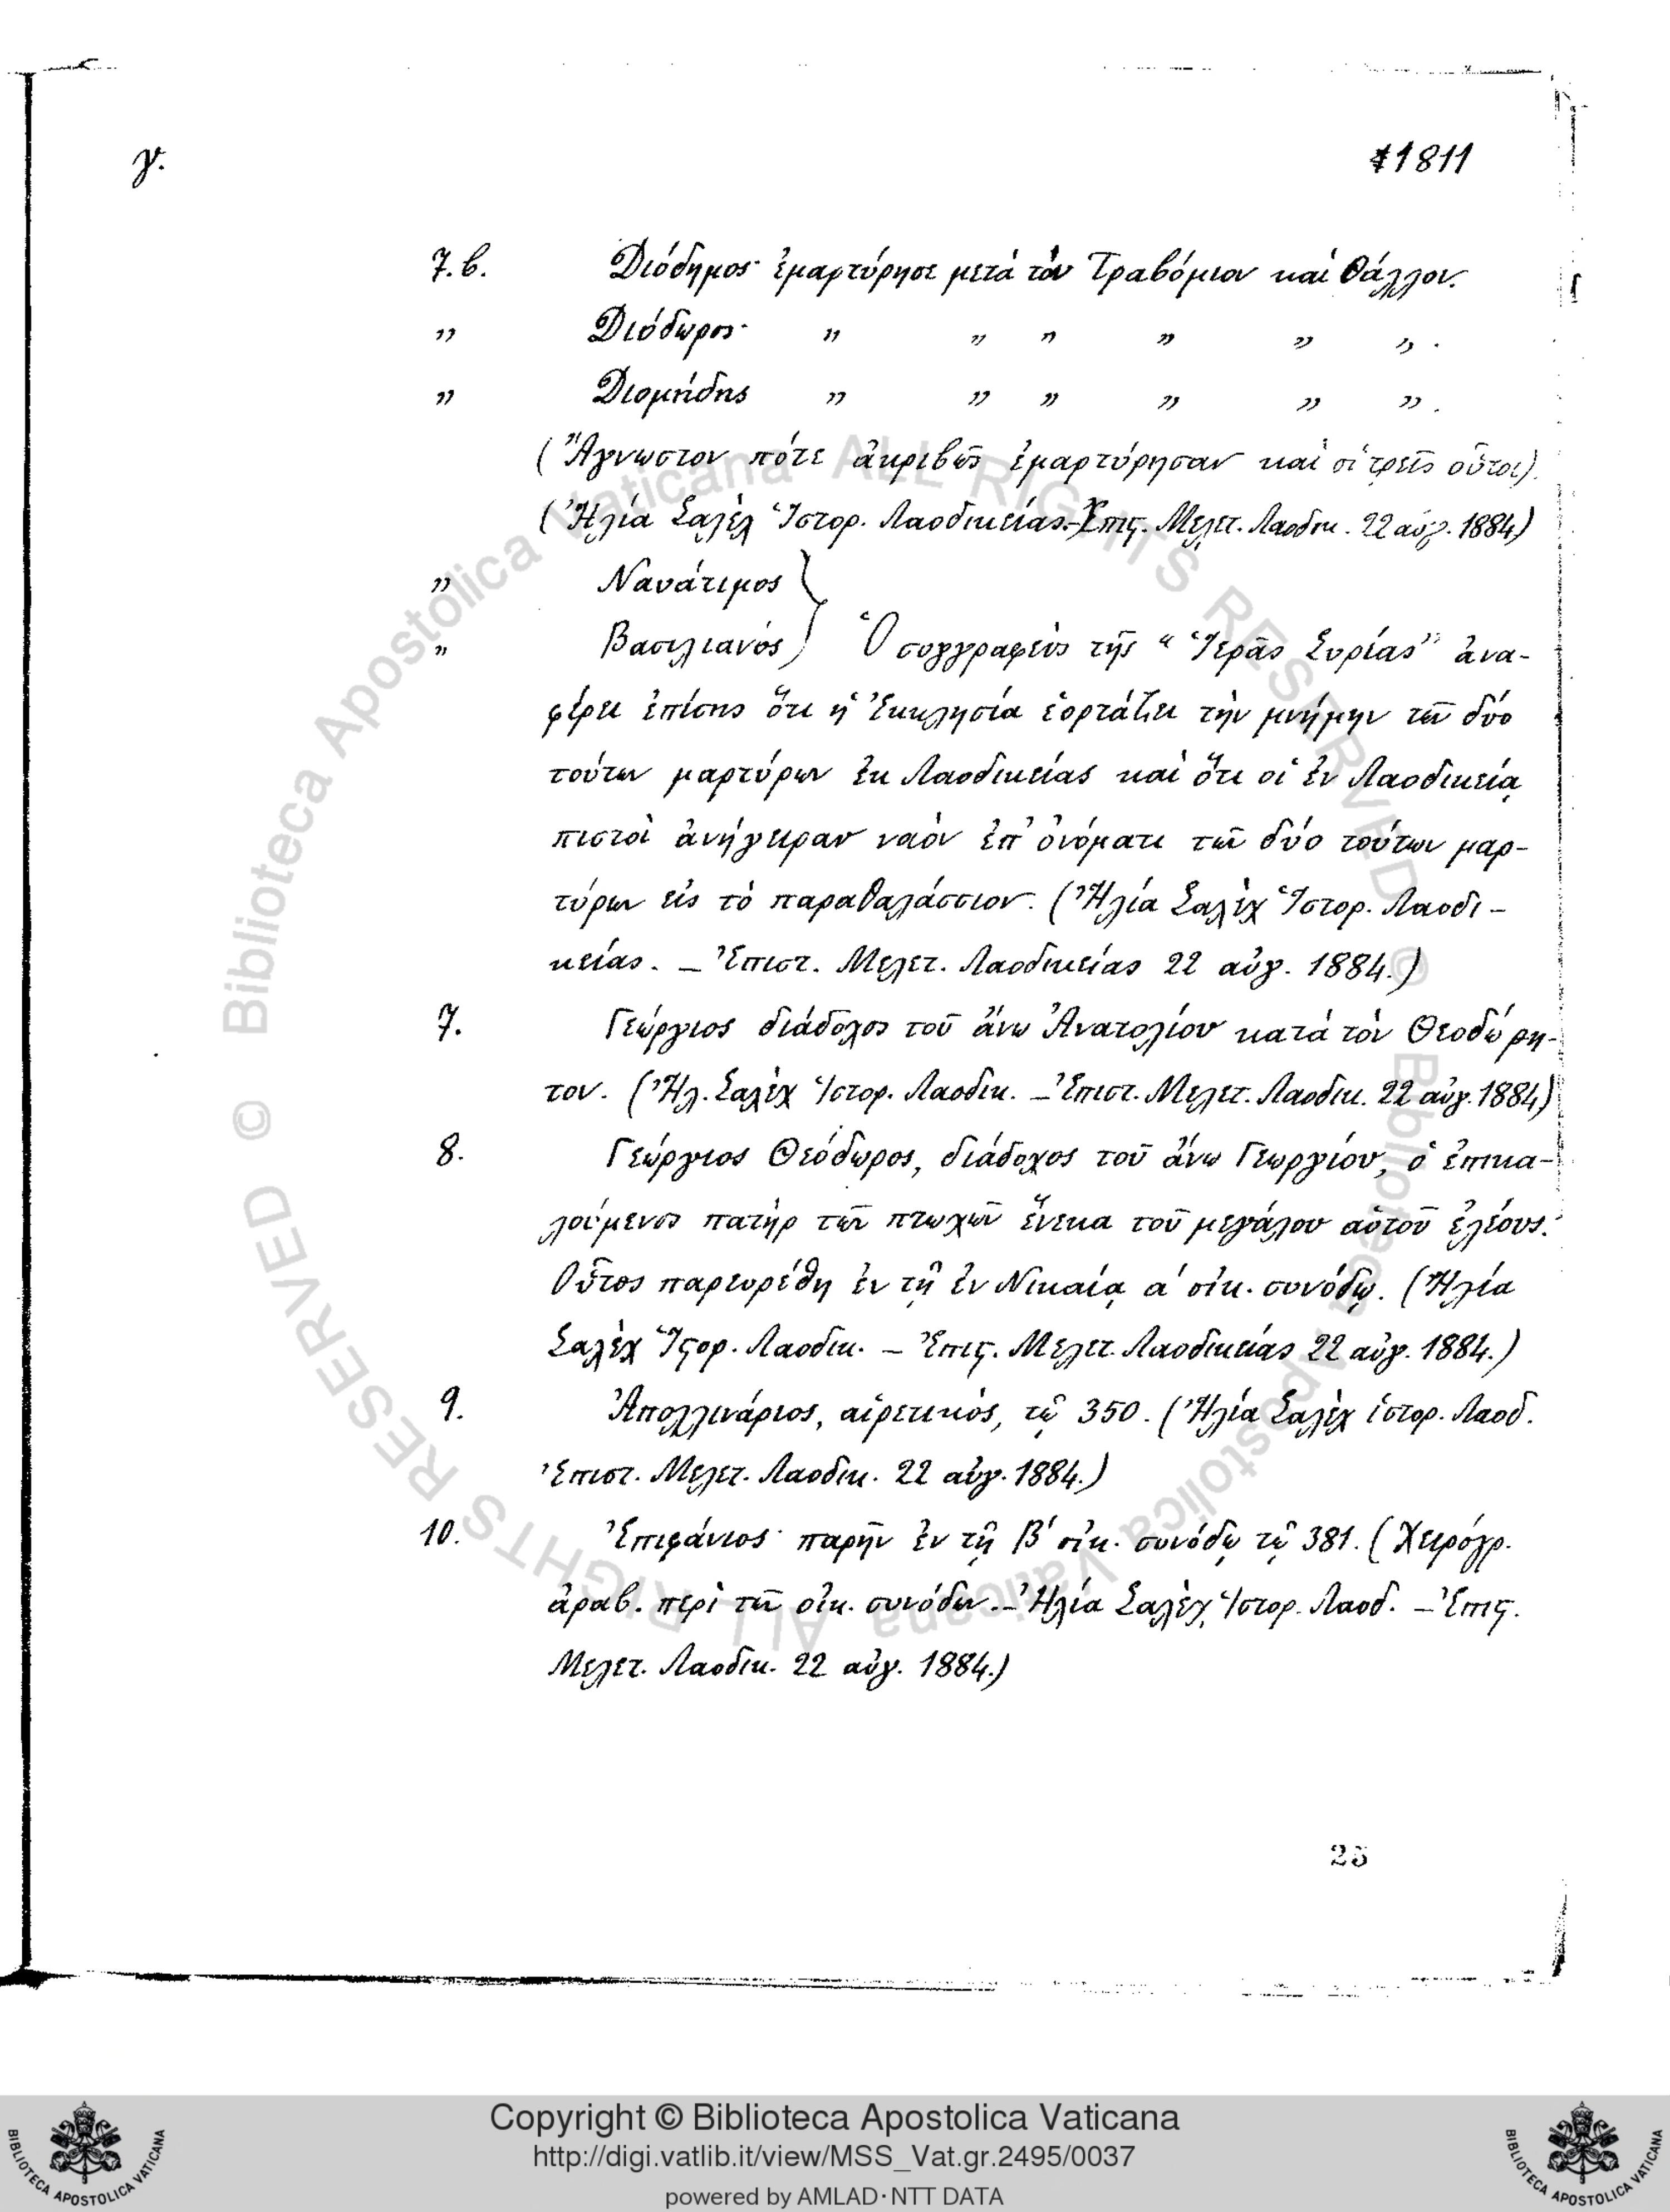 γ.
1811
7.β. Διόδημος· ἐμαρτύρησε μετὰ τὸν Τραβόμιον καὶ Θάλλον.
„ Διόδωρος· „ „ „ „ „ „ .
„ Διομήδης „ „ „ „ „ „ .
(Ἄγνωστον πότε ἀκριβῶς ἐμαρτύρησαν καὶ οἱ τρεῖς οὗτοι).
(Ἠλία Σαλὲχ Ἱστορ. Λαοδικείας.- Ἐπιϛ. Μελετ. Λαοδικ. 22 αὐγ. 1884)
„ Ναυάτιμος
„ Βασιλιανός } Ὁ συγγραφεὺς τῆς “Ἱερᾶς Συρίας” ἀνα-
φέρει ἐπίσης ὅτι ἡ Ἐκκλησία ἑορτάζει τὴν μνήμην τῶν δύο
τούτων μαρτύρων ἐκ Λαοδικείας καὶ ὅτι οἱ ἐν Λαοδικείᾳ
πιστοὶ ἀνήγειραν ναὸν ἐπ’ ὀνόματι τῶν δύο τούτων μαρ-
τύρων εἰς τὸ παραθαλάσσιον. (Ἠλία Σαλὲχ Ἱστορ. Λαοδι-
κείας. - Ἐπιστ. Μελετ. Λαοδικείας 22 αὐγ. 1884.)
7. Γεώργιος διάδοχος τοῦ ἄνω Ἀνατολίου κατὰ τὸν Θεοδώρη-
τον. (Ἠλ. Σαλὲχ Ἱστορ. Λαοδικ. - Ἐπιστ. Μελετ. Λαοδικ. 22 αὐγ. 1884)
8. Γεώργιος Θεόδωρος, διάδοχος τοῦ ἄνω Γεωργίου, ὁ ἐπικα-
λούμενος πατὴρ τῶν πτωχῶν ἕνεκα τοῦ μεγάλου αὐτοῦ ἐλέους.
Οὗτος παρευρέθη ἐν τῇ ἐν Νικαίᾳ α΄ οἰκ. συνόδῳ. (Ἠλία
Σαλὲχ Ἱϛορ. Λαοδικ. - Ἐπιϛ. Μελετ. Λαοδικείας 22 αὐγ. 1884.)
9. Ἀπολλινάριος, αἱρετικὸς, τῷ 350. (Ἠλία Σαλὲχ ἱστορ. Λαοδ.
Ἐπιστ. Μελετ. Λαοδικ. 22 αὐγ. 1884.)
10. Ἐπιφάνιος· παρῆν ἐν τῇ β΄ οἰκ. συνόδῳ τῷ 381. (Χειρόγρ.
ἀραβ. περὶ τῶν οἰκ. συνόδων.- Ἠλία Σαλὲχ Ἱστορ. Λαοδ. - Ἐπιϛ.
Μελετ. Λαοδικ. 22 αὐγ. 1884.)
25
© Biblioteca Apostolica Vaticana ALL RIGHTS RESERVED © Biblioteca Apostolica Vaticana ALL RIGHTS RESERVED
Copyright © Biblioteca Apostolica Vaticana
http://digi.vatlib.it/view/MSS_Vat.gr.2495/0037
powered by AMLAD·NTT DATA
BIBLIOTECA APOSTOLICA VATICANA
BIBLIOTECA APOSTOLICA VATICANA